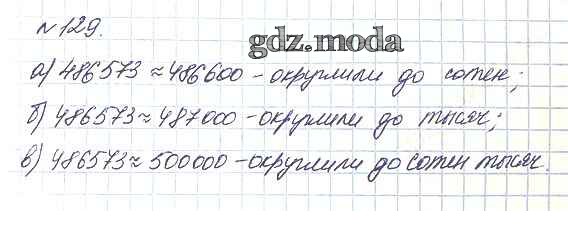 №129.
gdz.moda
а) 486573 ≈ 486600 - округлили до сотен;
б) 486573 ≈ 487000 - округлили до тысяч;
в) 486573 ≈ 500000 - округлили до сотен тысяч.